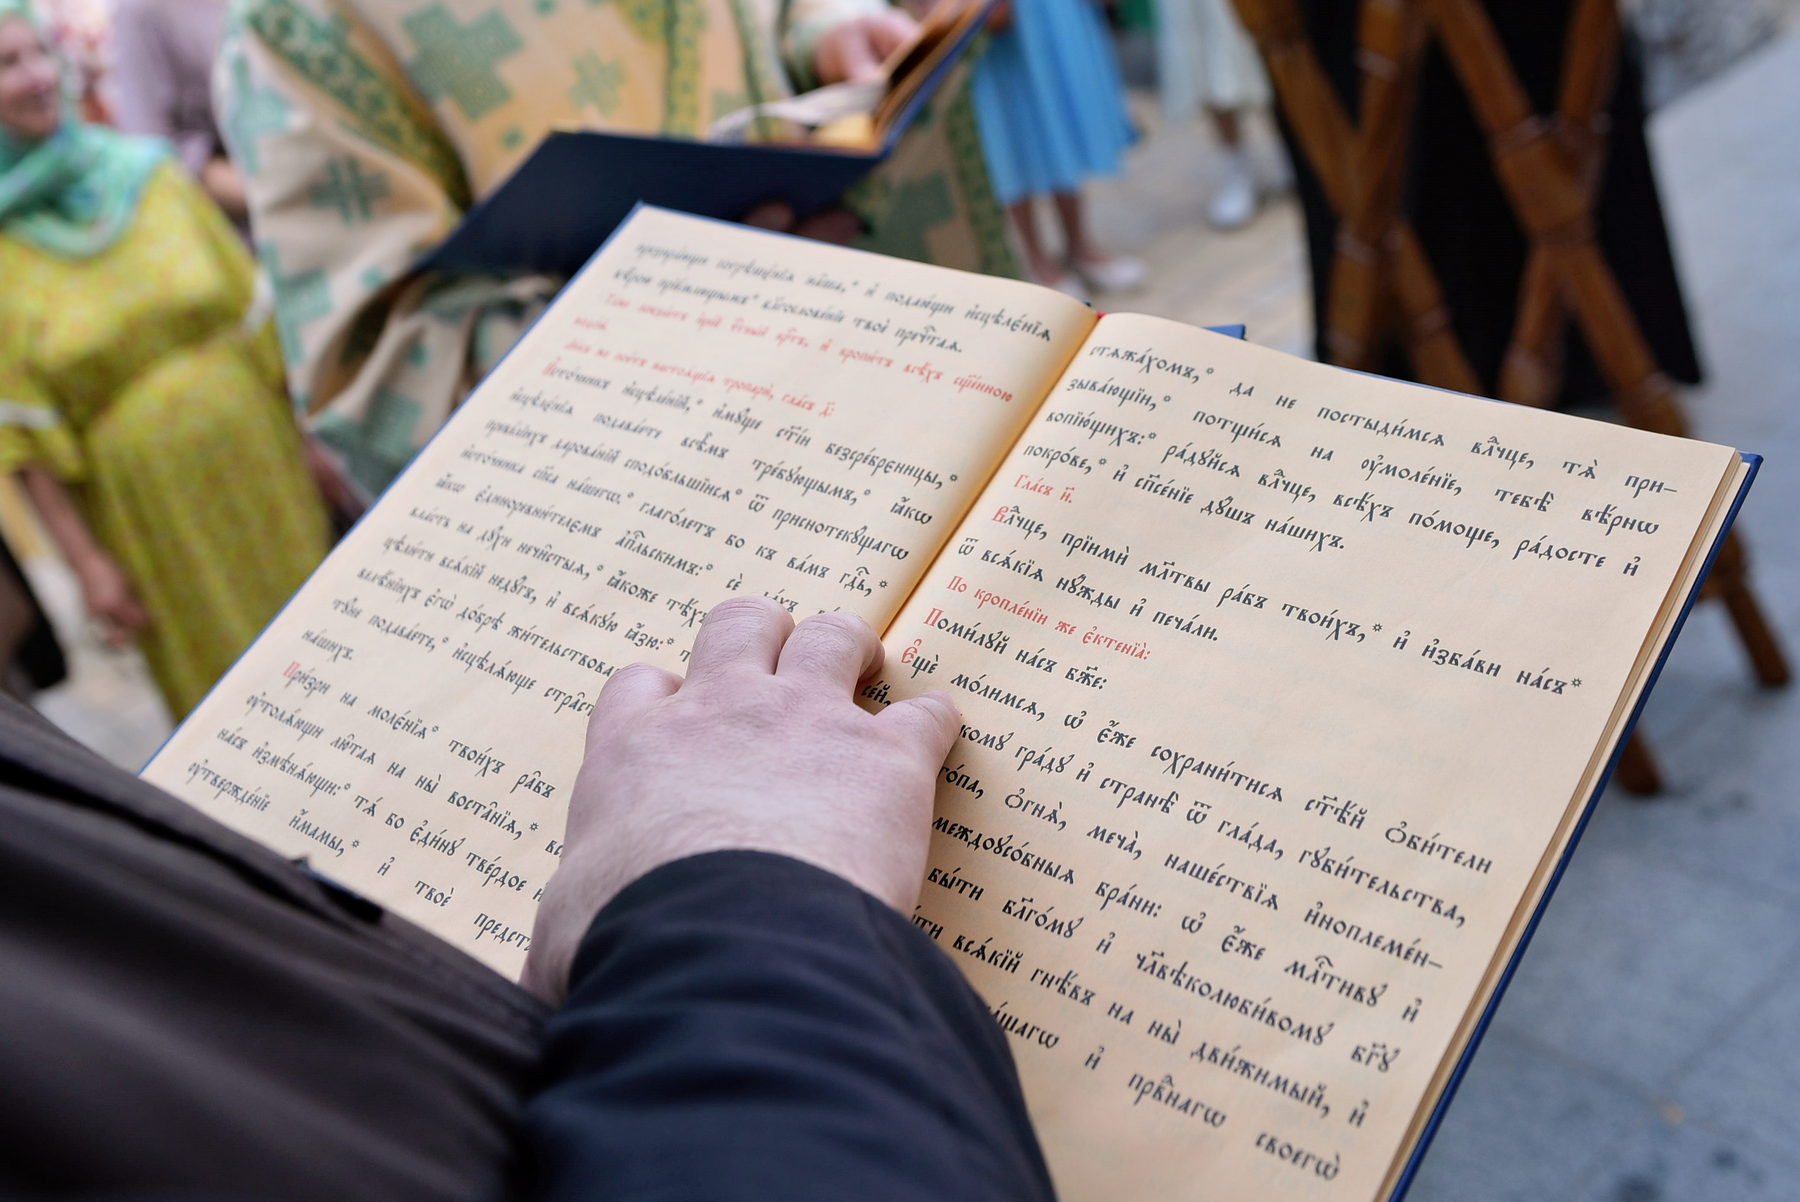 прегрѣшє́нїѧ на̑ша,* и҆ подаю́щи и҆сцѣлє́нїѧ
твоѐ пречⷭ҇таѧ.
и҆ кропи́тъ всѣ́хъ сщ҃е́нною
водо́ю.
тропарѝ, гла́съ д҃:
И҆сто́чникъ и҆сцѣле́нїй,* и҆мꙋ́ще ст҃і́и безсре́брєнницы,*
и҆сцѣлє́нїѧ подава́ете всѣ̑мъ тре́бꙋющымъ,* ꙗ҆́кѡ
дарова́нїй сподо́бльшїисѧ* ѿ приснотекꙋ́щагѡ
и҆сто́чника сп҃са на́шегѡ.* глаго́летъ бо къ ва́мъ гдⷭ҇ь,*
ꙗ҆́кѡ є҆диноревни́телємъ а҆пⷭ҇льскимъ:* сѐ да́хъ
вла́сть на дꙋ́хи нечи̑стыѧ,* ꙗ҆́коже тѣ́хъ
цѣли́ти всѧ́кїй недꙋ́гъ, и҆ всѧ́кꙋю ꙗ҆́зю:*
є҆гѡ̀ до́брѣ жи́тельствова
тꙋ́не подава́ете,* и҆сцѣлѧ́юще стра̑ст
на́шихъ.
При́зри на молє́нїѧ* твои́хъ ра̑бъ
ᲂу҆толѧ́ющи лю̑таѧ на ны̀ воста̑нїѧ,*
на́съ и҆змѣнѧ́ющи:* тѧ́ бо є҆ди́нꙋ тве́рдое
ᲂу҆твержде́нїе и҆́мамы,* и҆ твоѐ предст
стѧжа́хомъ,* да не постыди́мсѧ влⷣчце, тѧ̀ при-
зыва́ющїи,* потщи́сѧ на ᲂу҆моле́нїе, тебѣ̀ вѣ́рнѡ
вопїю́щихъ:* ра́дꙋйсѧ влⷣчце, всѣ́хъ по́моще, ра́досте и҆
покро́ве,* и҆ сп҃се́нїе дꙋ́шъ на́шихъ.
Гла́съ и҃.
Влⷣчце, прїимѝ мл҃твы ра̑бъ твои́хъ,* и҆ и҆зба́ви на́съ*
ѿ всѧ́кїѧ нꙋ́жды и҆ печа́ли.
По кропле́нїи же є҆ктенїа̀:
Поми́лꙋй на́съ бж҃е:
Є҆щѐ мо́лимсѧ, ѡ҆ є҆́же сохрани́тисѧ ст҃ѣ́й ѻ҆би́тели
се́й, комꙋ гра́дꙋ и҆ странѣ̀ ѿ гла́да, гꙋби́тельства,
ѻ҆гнѧ̀, меча̀, наше́ствїѧ и҆ноплеме́н-
междоꙋсо́бныѧ бра́ни: ѡ҆ є҆́же млⷭ҇тивꙋ и҆
бы́ти бл҃го́мꙋ и҆ чл҃вѣколюби́вомꙋ бг҃ꙋ
всѧ́кїй гнѣ́въ на ны̀ дви́жимый, и҆
и҆ првⷣнагѡ своегѡ̀